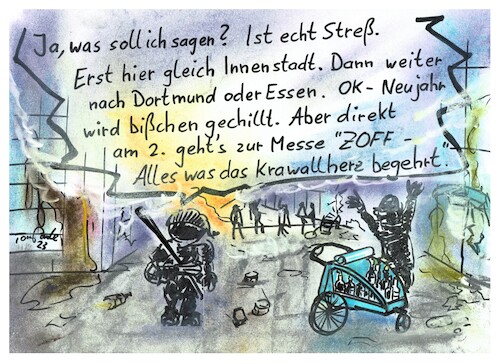 Ja, was soll ich sagen? Ist echt Streß.
Erst hier gleich Innenstadt. Dann weiter
nach Dortmund oder Essen. OK-Neujahr
wird bißchen gechillt. Aber direkt
am 2. geht's zur Messe "ZOFF-
Alles was das Krawallherz begehrt."